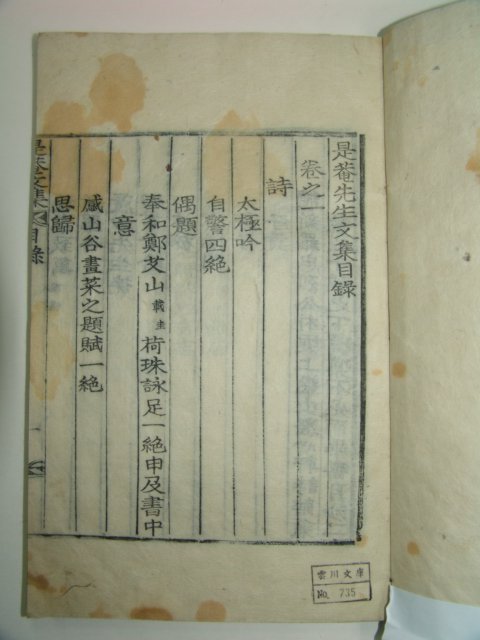 是菴先生文集目錄
卷之一
詩
太極吟
自警四絶
偶題
奉和鄭艾山載圭荷珠詠足一絶申及書中
意
感山谷畫菜之題賦一絶
思歸
是菴文集 目錄
雲川文庫
No. 735